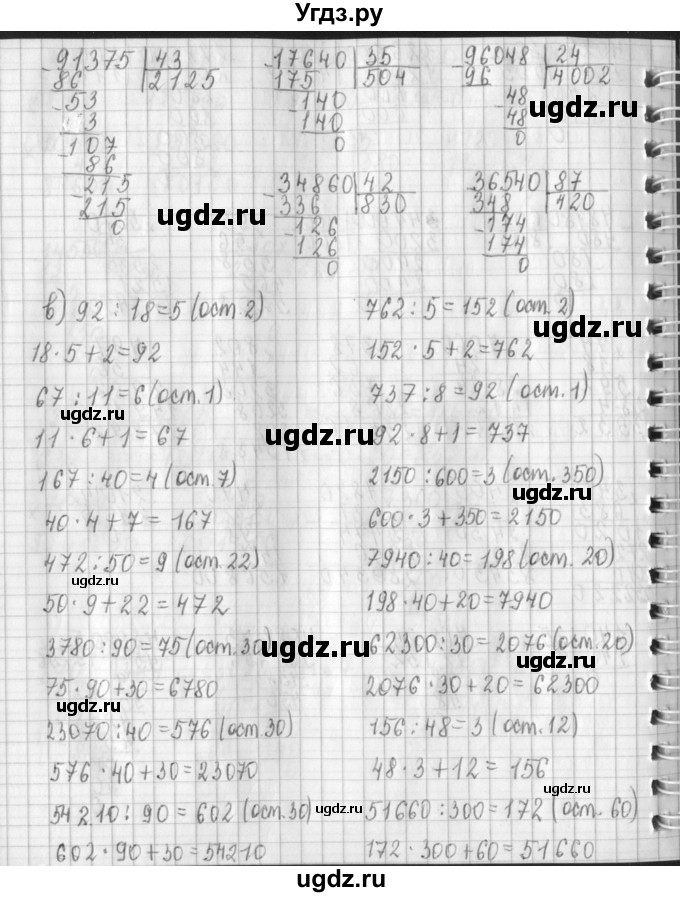 Угдз.ру
91375 | 43
86 | 2125
- 53
3
- 107
86
- 215
215
0
- 17640 | 35
175 | 504
- 140
140
0
- 96048 | 24
96 | 4002
- 48
48
0
- 34860 | 42
336 | 830
- 126
126
0
- 36540 | 87
348 | 420
- 174
174
0
ugdz.ru
ugdz.ru
в) 92 : 18 = 5 (ост. 2)
18 · 5 + 2 = 92
67 : 11 = 6 (ост. 1)
ugdz.ru
11 · 6 + 1 = 67
167 : 40 = 4 (ост. 7)
40 · 4 + 7 = 167
472 : 50 = 9 (ост. 22)
ugdz.ru
50 · 9 + 22 = 472
3780 : 90 = 75 (ост. 30)
75 · 90 + 30 = 6780
ugdz.ru
23070 : 40 = 576 (ост. 30)
576 · 40 + 30 = 23070
54210 : 90 = 602 (ост. 30)
602 · 90 + 30 = 54210
762 : 5 = 152 (ост. 2)
ugdz.ru
152 · 5 + 2 = 762
737 : 8 = 92 (ост. 1)
ugdz.ru
92 · 8 + 1 = 737
2150 : 600 = 3 (ост. 350)
ugdz.ru
600 · 3 + 350 = 2150
7940 : 40 = 198 (ост. 20)
198 · 40 + 20 = 7940
ugdz.ru
62300 : 30 = 2076 (ост. 20)
ugdz.ru
2076 · 30 + 20 = 62300
156 : 48 = 3 (ост. 12)
48 · 3 + 12 = 156
ugdz.ru
51660 : 300 = 172 (ост. 60)
ugdz.ru
172 · 300 + 60 = 51660
ugdz.ru